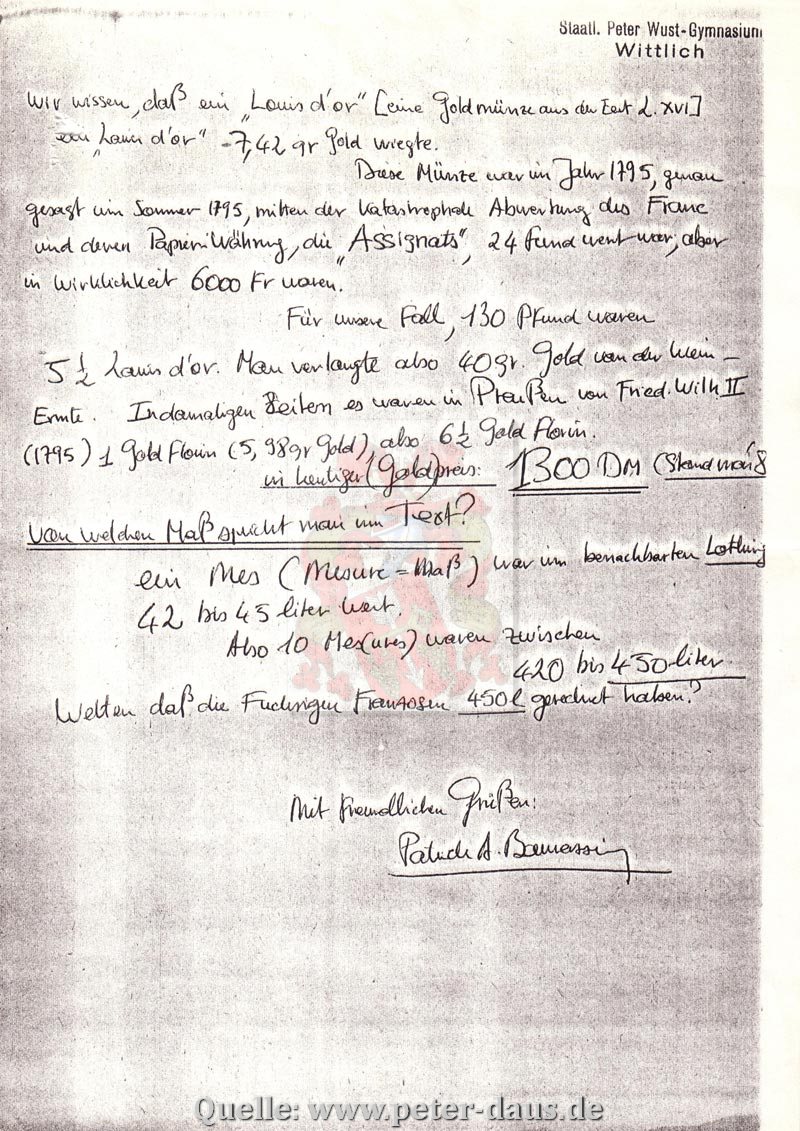 Staatl. Peter Wust-Gymnasium
Wittlich
Wir wissen, daß ein „Louis d'or" [eine Goldmünze aus der Zeit L. XVI]
ein „Louis d'or" - 7,42 gr Gold wiegte.
Diese Münze war im Jahr 1795, genau
gesagt im Sommer 1795, mitten der Katastrophale Abwertung des Franc
und deren Papier-Währung, die "Assignats", 24 Pfund wert war; aber
in Wirklichkeit 6000 Fr waren.
Für unsere Fall, 130 Pfund waren
5 ½ Louis d'or. Man verlangte also 40 gr. Gold von der Wein-
Ernte. In damaligen Zeiten es waren in Preußen von Fried. Wilh II
(1795) 1 Gold Florin (5,98 gr Gold), also 6 ½ Gold Florin.
in heutiger (Gold)preis: 1300 DM (Stand
Von welchen Maß spricht man im Text?
ein Mes (Mesure = Maß) war im benachbarten Lothring
42 bis 45 liter wert.
Also 10 Mes(ures) waren zwischen
420 bis 450 liter.
Wetten daß die Fuchsigen Franzosen 450 l gerechnet haben?
Mit freundlichen Grüßen:
Patrick A.
Quelle: www.peter-daus.de